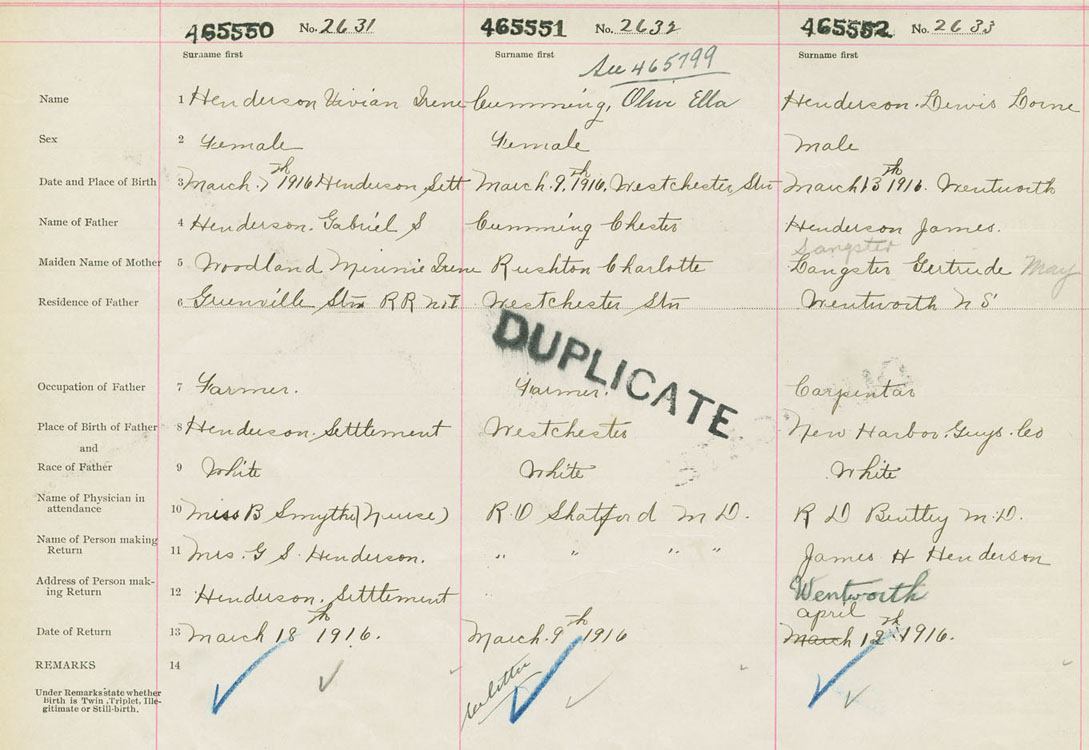 465550 No. 2631 465551 No. 2632 465552 No. 2633
Surname first Surname first Surname first
See 465799
Name 1 Henderson Vivian Irene Cumming, Olive Ella Henderson. Lewis Lorne
Sex 2 Female Female Male
Date and Place of Birth 3 March. 7th 1916 Henderson Sett March. 9th 1916, Westchester Stn March 13th 1916. Wentworth
Name of Father 4 Henderson. Gabriel S Cumming Chester Henderson James.
Sangster
Maiden Name of Mother 5 Woodland Minnie Irene Rushton Charlotte Langster Gertrude May
Residence of Father 6 Greenville Stn RR No 1 Westchester Stn Wentworth N S
DUPLICATE
Occupation of Father 7 Farmer. Farmer. Carpentar
Place of Birth of Father 8 Henderson. Settlement Westchester New Harbor, Guys. Co
and
Race of Father 9 White White White
Name of Physician in
attendance 10 Miss B Smythe (Nurse) R. D Shatford M D. R D Bentley M.D.
Name of Person making
Return 11 Mrs. G S. Henderson. " " " " James H Henderson
Address of Person mak-
ing Return 12 Henderson. Setttement Wentworth
april
Date of Return 13 March 18th 1916. March. 9th 1916 March 12th 1916.
REMARKS 14
see letter
Under Remarks state whether
Birth is Twin, Triplet, Ille-
gitimate or Still-birth.